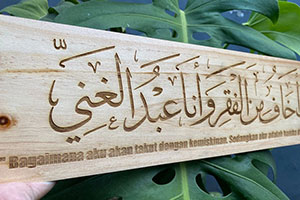 أخاف من الفقر وأنا عبد الغنيّ
"Bagaimana aku akan takut dengan kemiskinan, Sedangkan aku adalah